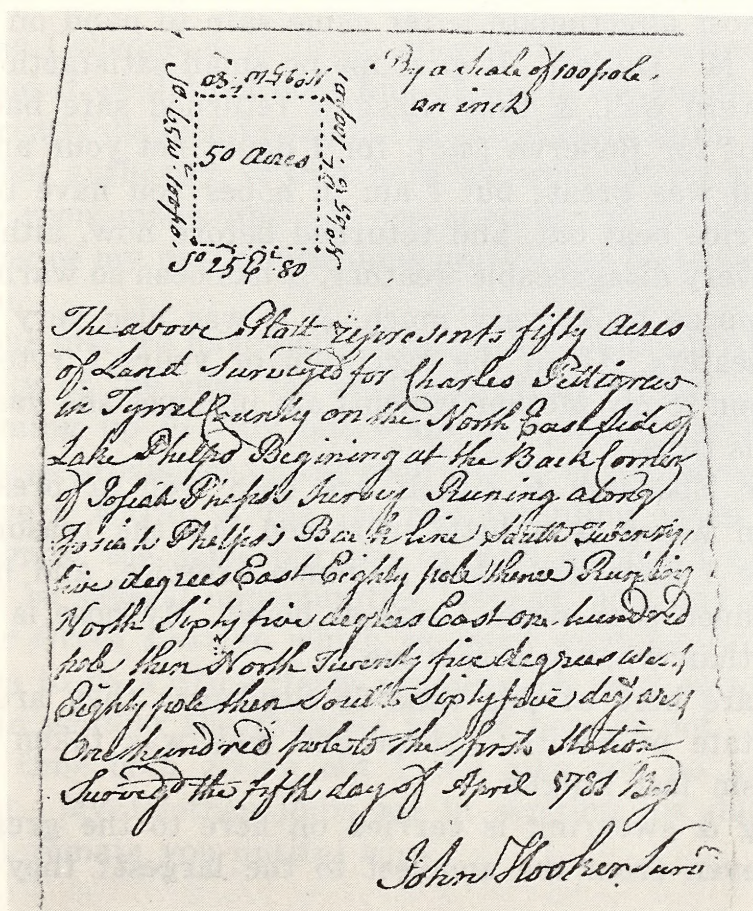 By a Scale of 100 pole
an inch
No 25 W 80
So. 65 W 100 po.
50 Acres
No 65 E 100 po
So 25 E 80
The above Platt represents fifty Acres
of Land Surveyed for Charles Pettigrew
in Tyrrel County on the North East side of
Lake Phelps Begining at the Back Corner
of Josiah Phelps's Survey Runing along
Josiah Phelps's Back line South Twenty
five degrees East Eighty pole thence Runing
North Sixty five degrees East one hundred
pole then North Twenty five degrees west
Eighty pole then South Sixty five deg
One hundred pole to the first Station
Survey'd the fifth day of April By
John Hooker Survr